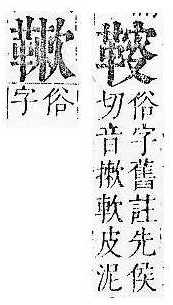 俗字舊註先侯
切音㨞軟皮泥
俗字